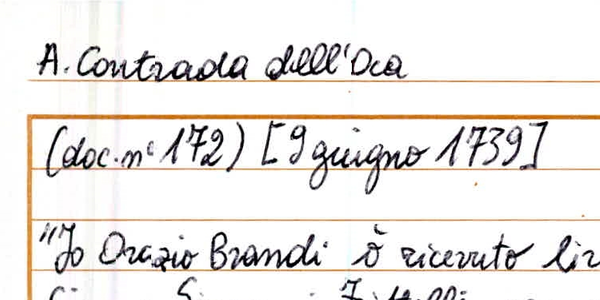 A. Contrada dell'Oca
(doc. n° 172) [9 giugno 1739]
"Jo Orazio Brandi ò ricevuto lir